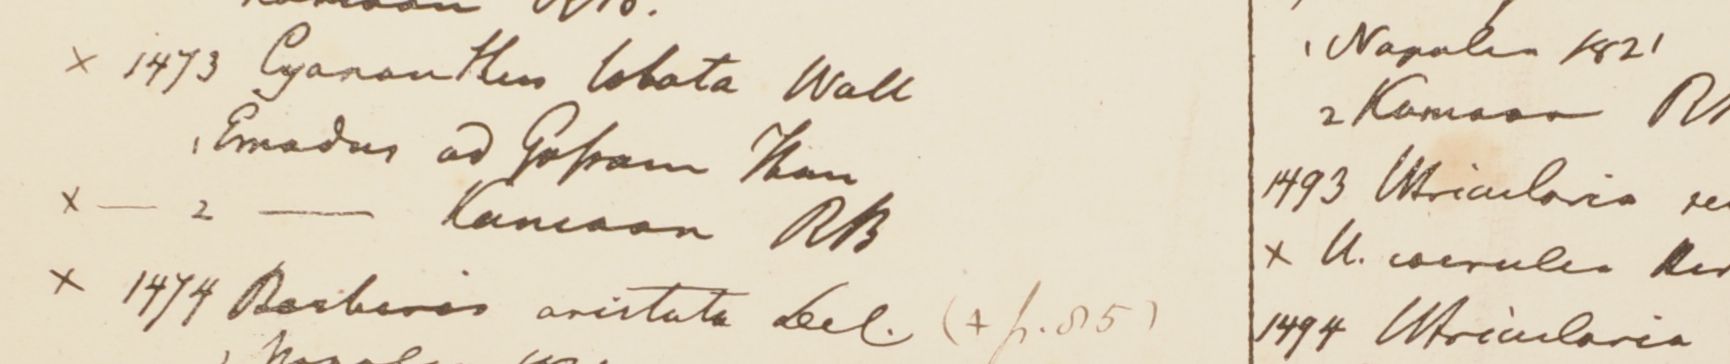 Kamaon RB.
× 1473 Cyananthus lobata Wall
1 Emodus ad Gossam Than
× — 2 — Kamaon RB
× 1474 Berberis aristata Decl. (+ p. 85)
1 Napalia 1821
2 Kamaon
1493 Utricularia
× U. coerulea
1494 Utricularia